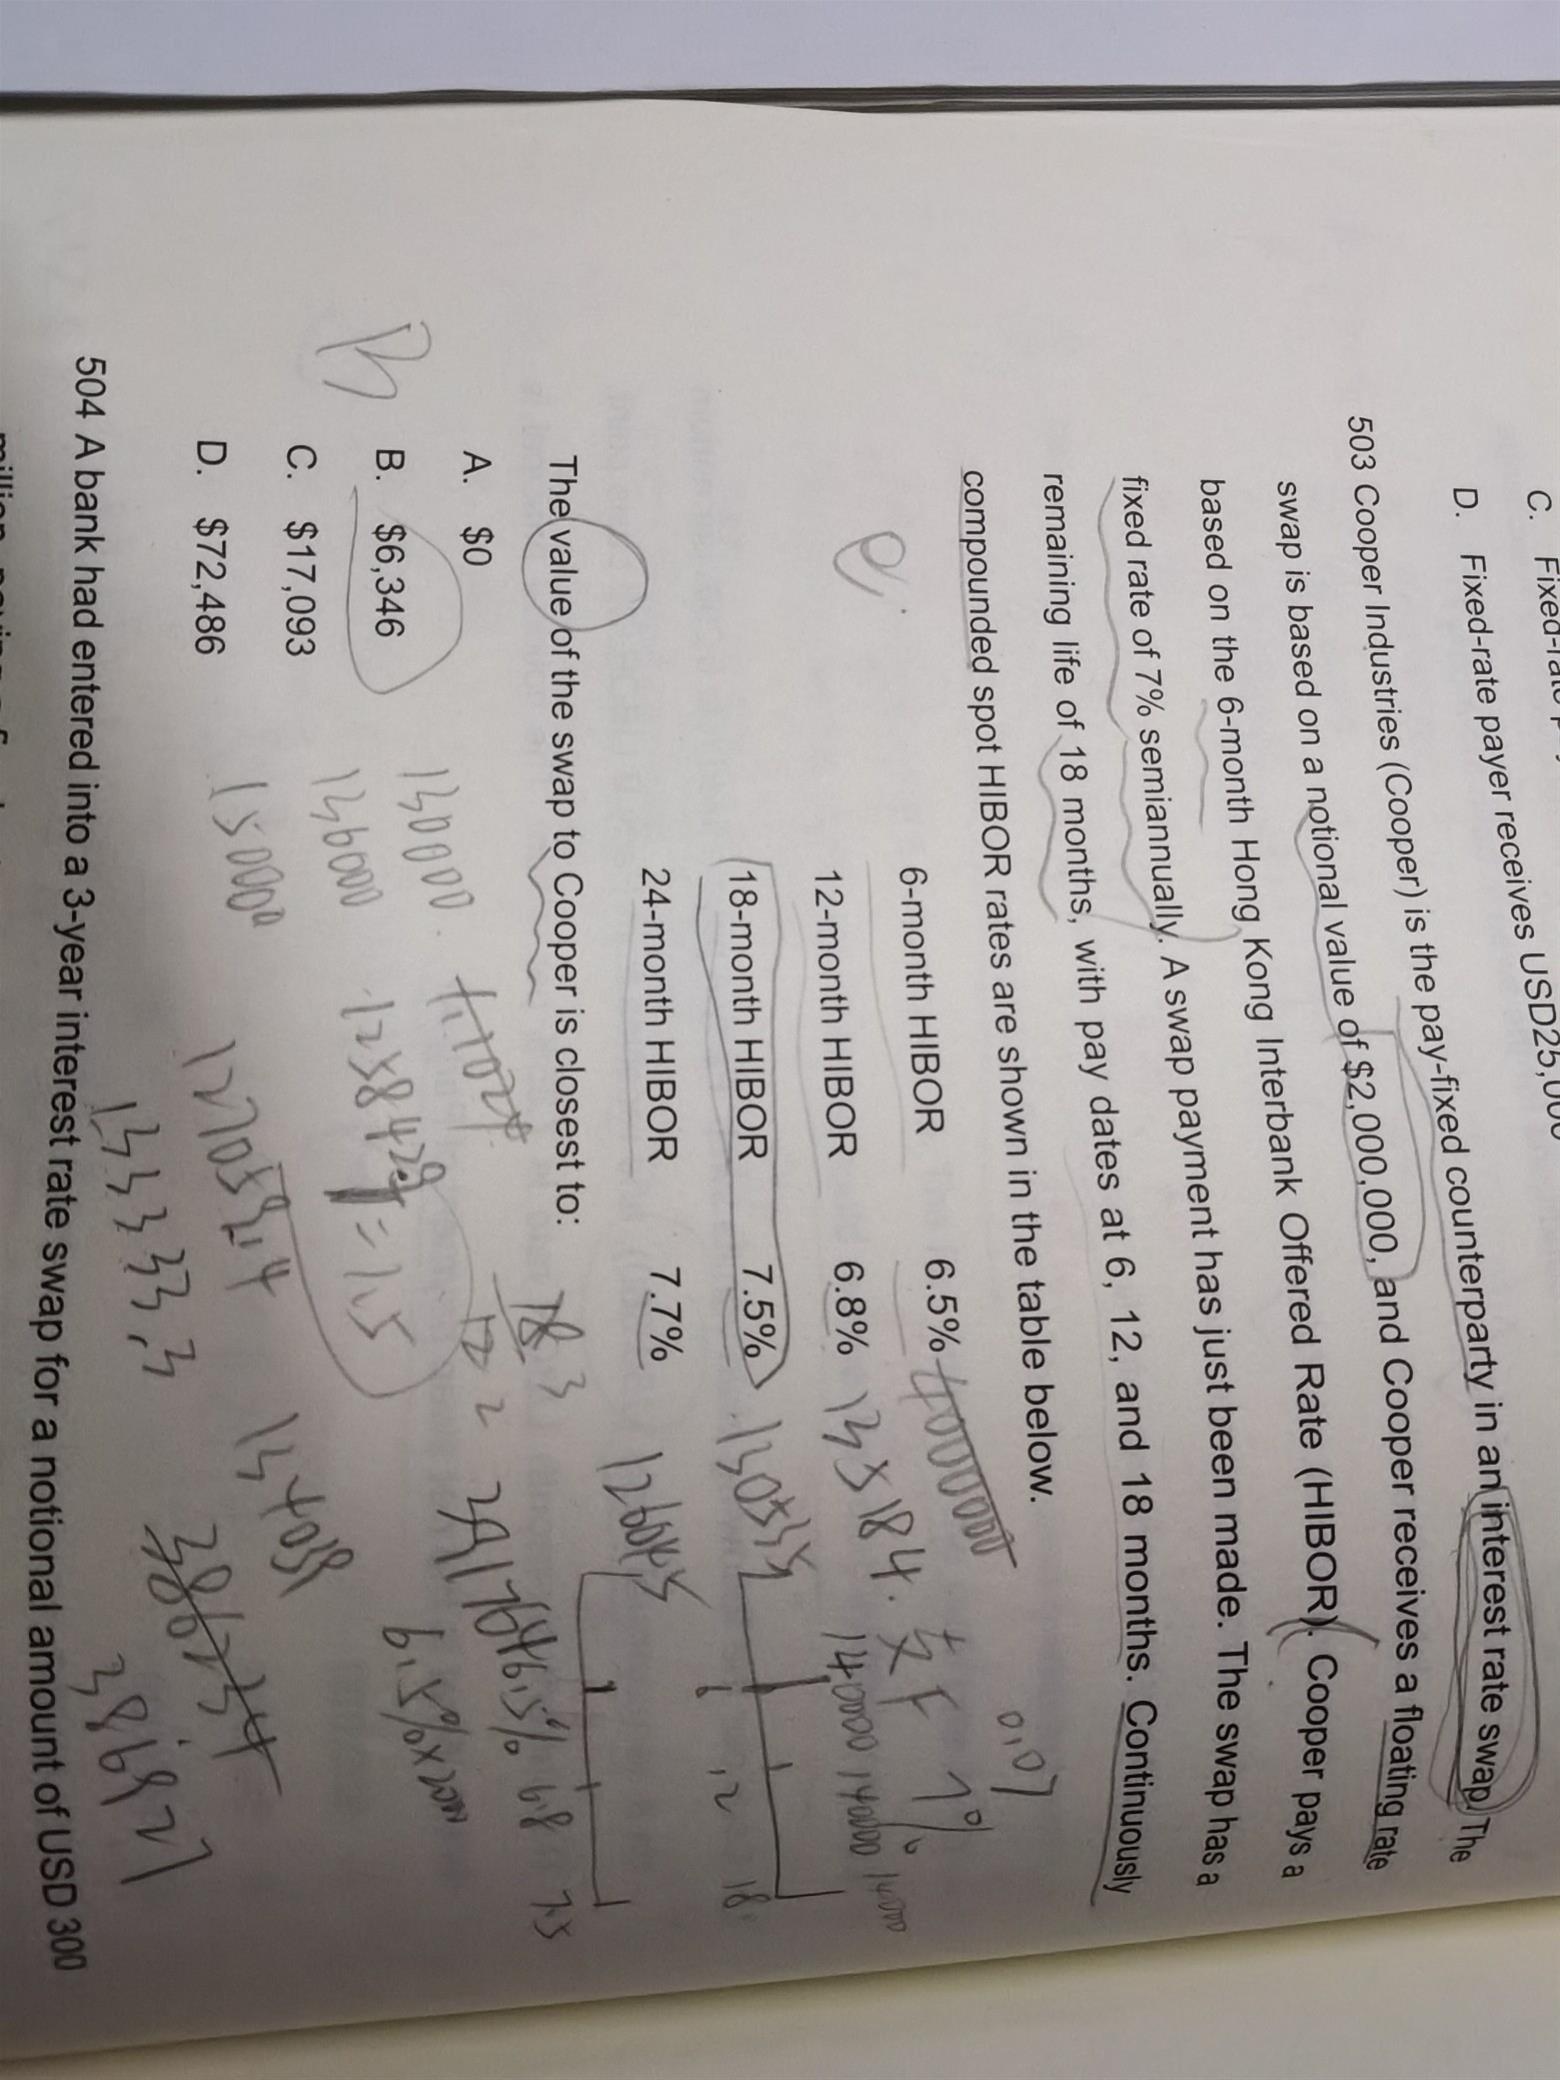 C. Fixed-rate
D. Fixed-rate payer receives USD25,000
503 Cooper Industries (Cooper) is the pay-fixed counterparty in an interest rate swap. The
swap is based on a notional value of $2,000,000, and Cooper receives a floating rate
based on the 6-month Hong Kong Interbank Offered Rate (HIBOR). Cooper pays a
fixed rate of 7% semiannually. A swap payment has just been made. The swap has a
remaining life of 18 months, with pay dates at 6, 12, and 18 months. Continuously
compounded spot HIBOR rates are shown in the table below.
0.07
6-month HIBOR 6.5%
7%
12-month HIBOR 6.8% 135184. 140000 140000
18-month HIBOR 7.5%
6 12 18
24-month HIBOR 7.7%
The value of the swap to Cooper is closest to:
6.5% 6.8 7.5
A. $0
B. $6,346 130000
B
C. $17,093 136000
D. $72,486 150000
13333.3
386927
504 A bank had entered into a 3-year interest rate swap for a notional amount of USD 300